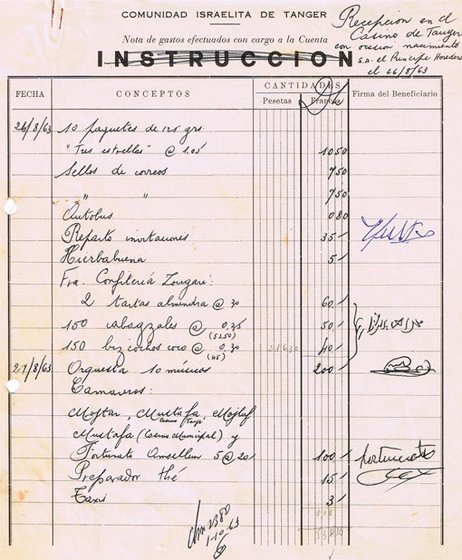 COMUNIDAD ISRAELITA DE TANGER
Nota de gastos efectuados con cargo a la Cuenta
INSTRUCCION
Recepcion en el
Casino de Tanger
con ocasion nacimiento
S.A. el Principe Heredero
el 26/8/63
FECHA CONCEPTOS CANTIDADES Firma del Beneficiario
Pesetas Francos
26/8/63 10 paquetes de 125 grs
"Tres estrellas" @ 1.05 1050
Sellos de correos 750
" " 750
Autobus 080
Reparto invitaciones 35
Hierbabuena 5
Fra. Confiteria Zougari:
2 tartas almendra @ 30 60
150 cabagzales @ 0,35 50
(5250)
150 bizcochos coco @ 0,30 40
(45)
27/8/63 Orquesta 10 músicos 200
Camareros:
Mojtar, Mustafa, Mojtar
Casino Tanger
Mustafa (Casino Municipal) y
Fortunato Amsellem 5 @ 20 100
Preparador thé 15
Taxi 3
1-10-63